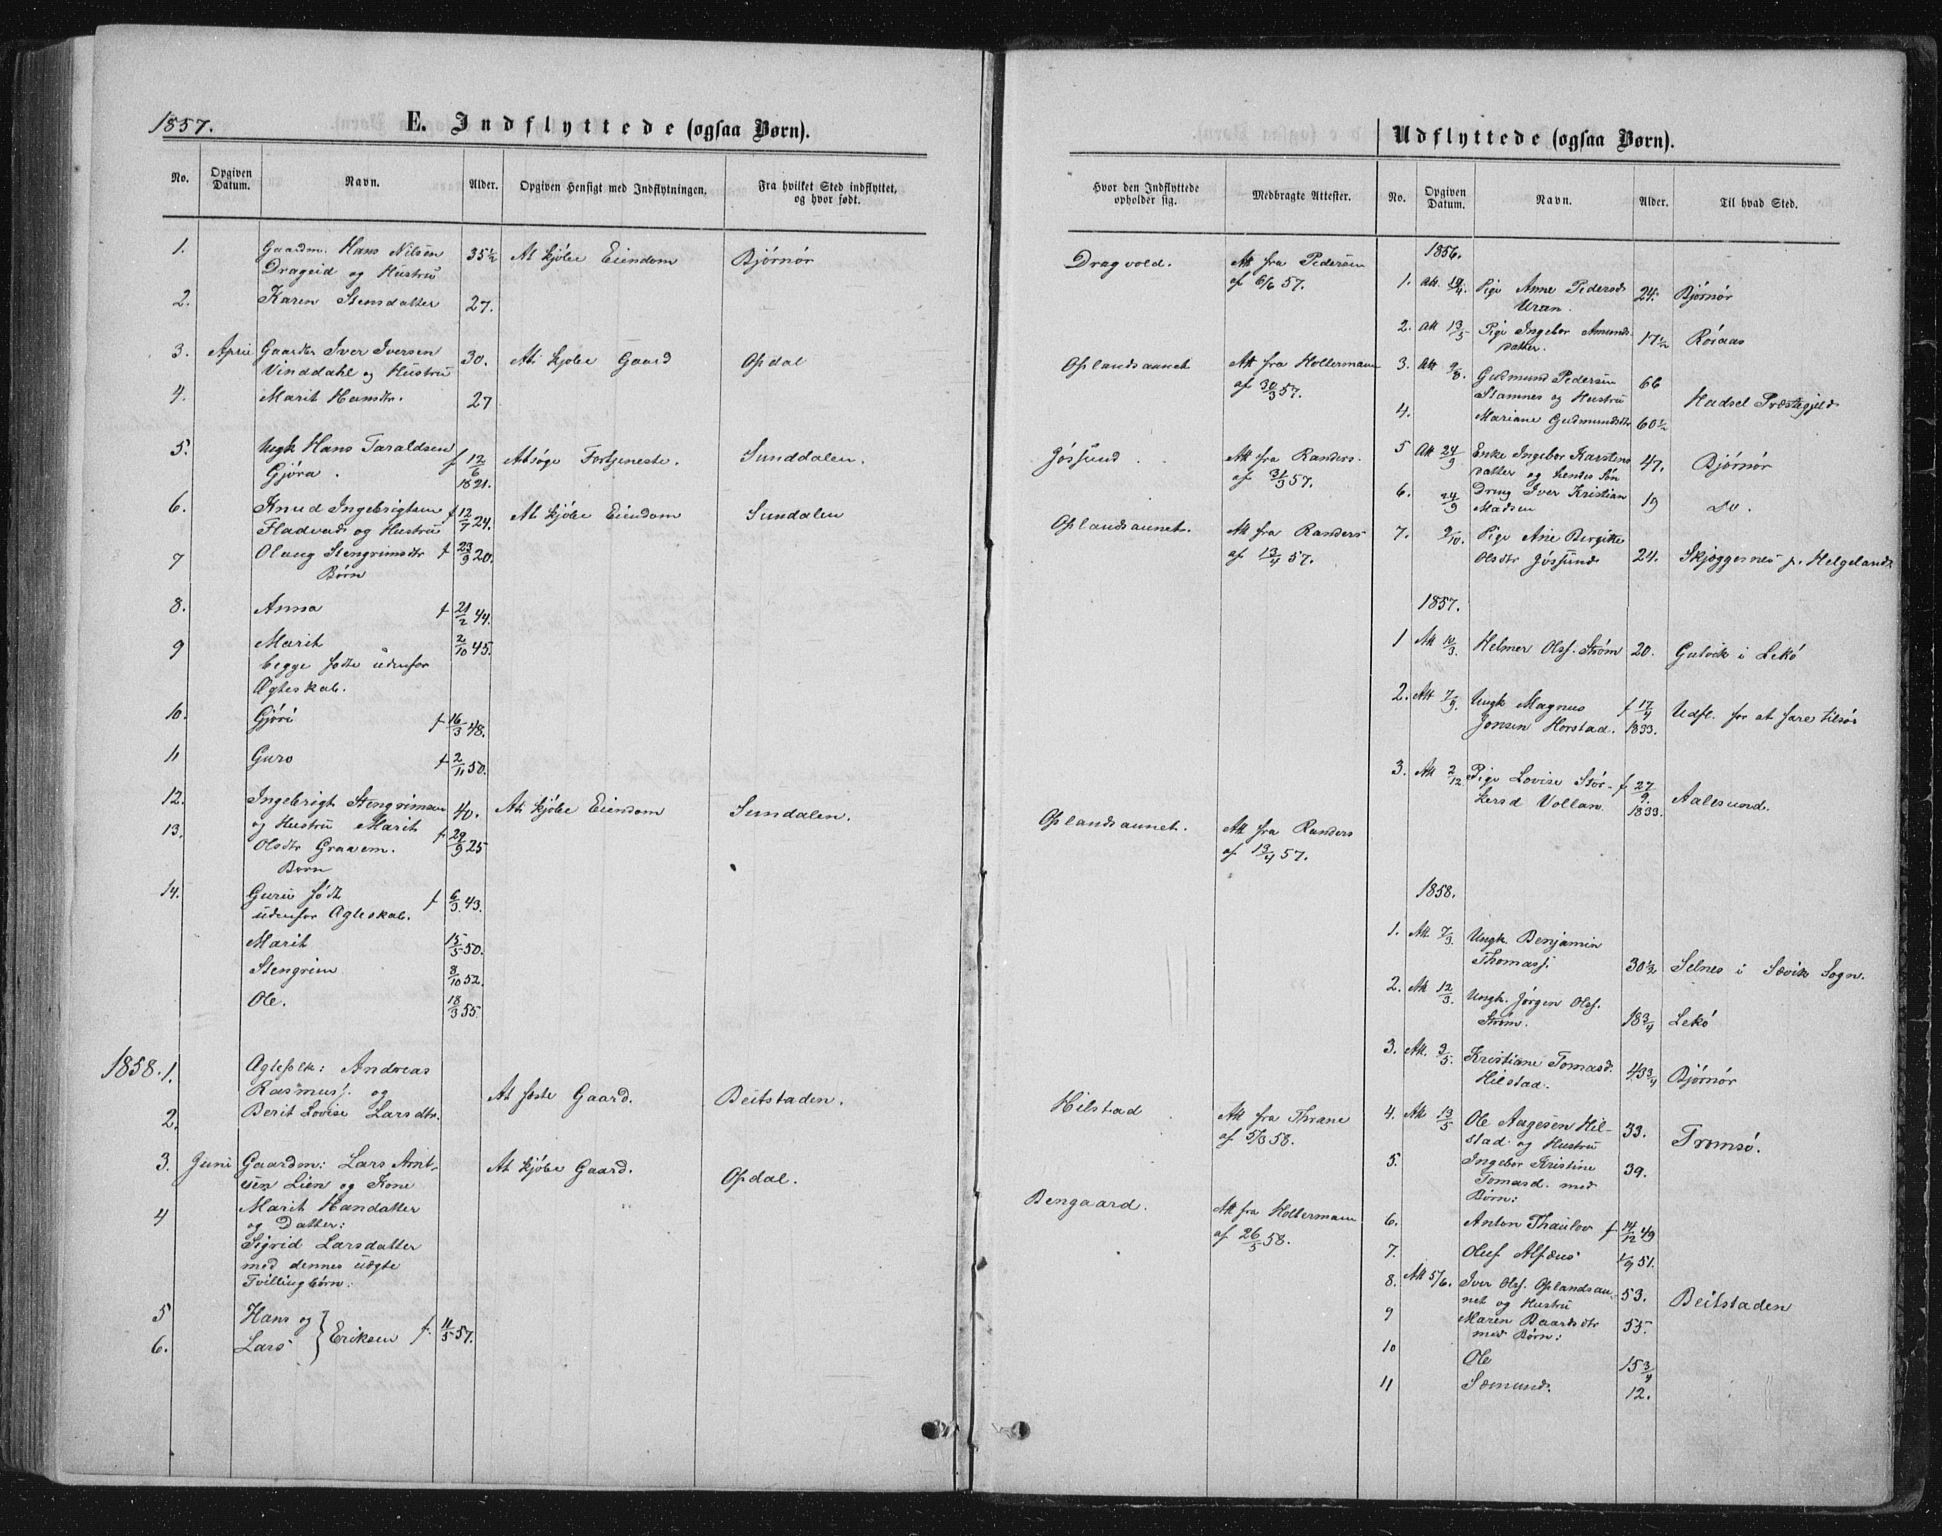 1857.
E. Indflyttede (ogsaa Børn).
No. Opgiven Datum. Navn. Alder. Opgiven Hensigt med Indflytningen. Fra hvilket Sted indflyttet, og hvor født.
1. Gaardm. Hans Nilsen 35½ At kjøbe Eiendom Bjørnør
Drageid og Hustru
2. Karen Stensdatter 27.
3. April Gaardbr Iver Iversen 30. At kjøbe Gaard Opdal
Vinddahl og Hustru
4. Marit Hansdtr. 27
5. Ungk Hans Taraldsen f 12/6 1821. At søge Fortjeneste. Sunddalen.
Gjøra.
6. Knud Ingebrigtsen f 12/7 24. At kjøbe Eiendom Sundalen
Fladvad og Hustru
7 Olaug Stengrimsdtr f 23/9 20.
Børn
8. Anna f 21/2 44.
9 Marit 2/10 45.
begge fødte udenfor
Ægteskab.
10. Gjøri f 16/3 48.
11 Guro f 2/11 50.
12. Ingebrigt Stengrimsen 40. At kjøbe Eiendom Sundalen.
13. og Hustru Marit f 29/9 25
Olsdtr Gravem.
Børn
14. Guru født f 6/3 43.
udenfor Ægteskab.
Marit 15/5 50.
Stengrim 8/10 52.
Ole. 18/3 55.
1858. 1. Ægtefolk: Andreas
Rasmusf. og At fæste Gaard. Beitstaden.
2. Berit Lovise Larsdtr.
3. Juni Gaardm: Lars Arnt- At kjøbe Gaard. Opdal.
sen Lien og Kone
4 Marit Handatter
og Datter:
Sigrid Larsdatter
med dennes uægte
Tvillingbørn:
5 Hans og
6. Lars } Eriksen f. 11/5 57.
Udflyttede (ogsaa Børn).
Hvor den Indflyttede opholder sig. Medbragte Attester. No. Opgiven Datum. Navn. Alder. Til hvad Sted.
Dragvold. Att fra Pedersen
af 6/6 57.
Oplandsaunet Att fra Holtermann
af 30/3 57.
Jøssund Att fra Randers
af 31/3 57.
Oplandsaunet. Att fra Randers
af 13/4 57.
Oplandsaunet. Att fra Randers
af 13/4 57.
Hilstad Att fra Thrane
af 5/3 58.
Bengaard. Att fra Holtermann
af 26/5 58.
1856.
1. Att. Pige Anne Pedersd 24. Bjørnør
Uran.
2. Att 13/5 Pige Ingebor Amunds 17½ Røraas
datter.
3. Att 9/8. Gudmund Pedersen 66
Stamnes og Hustru Hadsel Præstegjeld
4. Mariane Gudmundsdtr 60½
5 Att 24/9 Enke Ingebor Karstens 47. Bjørnør
datter og hendes Søn
6. 24/9 Dreng Iver Kristian 19 Do.
Madsen
7. 9/10. Pige Ane Birgitte
Olsdtr Jøssund 24. Skjeggesnes p. Helgeland
1857.
1 Att 10/3. Helmer Olsf. Strøm 20. Gutvik i Lekø
2. Att 7/9. Ungk Magnus f 17/4 1833. Udfl. for at fare tilsøs
Jonsen Horstad.
3. Att 2/12 Pige Lovise Stør- f 27/9 1833. Aalesund.
kersd Vollan
1858.
1. Att. 7/3. Ungk. Benjamin
Thomasf. 30½ Selnes i Sævik Sogn.
2. Att 12/3. Ungk. Jørgen Olsf.
Strøm. 18¾ Lekø
3. Att. 3/5. Kristiane Tomasd. 43¾ Bjørnør
Hilstad.
4. Att 13/5 Ole Aagesen Hil- 33. Tromsø.
stad og Hustru
5. Ingebor Kristine 39.
Tomasd. med
Børn:
6. Anton Thaulov f 14/12 49
7. Oluf Alfæus 1/9 51.
8. Att 5/6. Iver Olsf. Oplandsau- 53. Beitstaden
net og Hustru
9 Maren Baardsdtr 55.
med Børn:
10 Ole 15¾
11 Sæmund. 12.